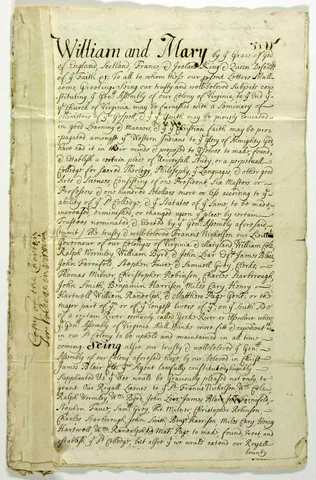 William and Mary by ye Grace of God
of England, Scotland, France & Ireland King & Queen Defendrs
of ye Faith &c To all to whom these our Letters Shall
come Greeting. our trusty and welbeloved Subjects
ye Genll Assembly of our Colony of Virginia, to ye End yt
ye Church of Virginia may be furnished with a Seminary of
Ministers of ye Gospell, & yt ye Youth may be piously Educated
in good Learning & Manners, & yt ye Christian Faith may be
amongst ye Western to ye Glory of Almighty God
have had it in their minds & proposed to
& Establish a certain place of Universall Study, or a perpetuall
Colledge for Sacred Theology, Philosophy, ye Languages & other good
Arts & Sciences, Consisting of one President Six Masters or
Professors & one hundred Schollars more or less according to ye
ability of ye Sd Colledge & ye Statutes of ye Same to be made
increased, diminished, or changed upon ye place by certain
Trustees nominated & Elected by ye Genll Assembly
trusty & welbeloved Francis Nicholson our
Governour of our Colonyes of Virginia & Maryland, William Cole
Ralph Wormley William Byrd, & John Lear Esqrs James Blair
John Farnifold Stephen Fauce & Samuell Gray, Clerks,
Thomas Milner, Christopher Robinson, Charles Scarborough
John Smith Benjamin Harrison Miles Cary Henry
Hartwell William Randolph, & Matthew Page Gents, or the
Major part of ym or of ye longest livers of ym on ye South
of a certain River commonly called York River or elsewhere
ye Genll Assembly of Virginia Shall think more fitt &
our Sd Colony to be upheld and maintained in all time
coming. Seing our trusty & welbeloved ye Genll
Assembly of our Colony aforesaid have by our beloved in Christ
James Blair Agent lawfully constituted
Supplicated Us yt wee would be graciously pleased not only
grant Our Royall to ye Sd Francis Nicholson Wm Cole
Ralph Wormley Wm Byrd, John Lear, James Blair, John Farnifold,
Stephen Fauce, Saml Gray Tho Milner Christopher Robinson
Charles Scarborough, John Smith, Benj Harrison Miles Cary Henry
Hartwell Wm Randolph & Mat: Page to make, found, Erect and
Establish ye Sd Colledge, but allso yt we would extend our Royall
bounty